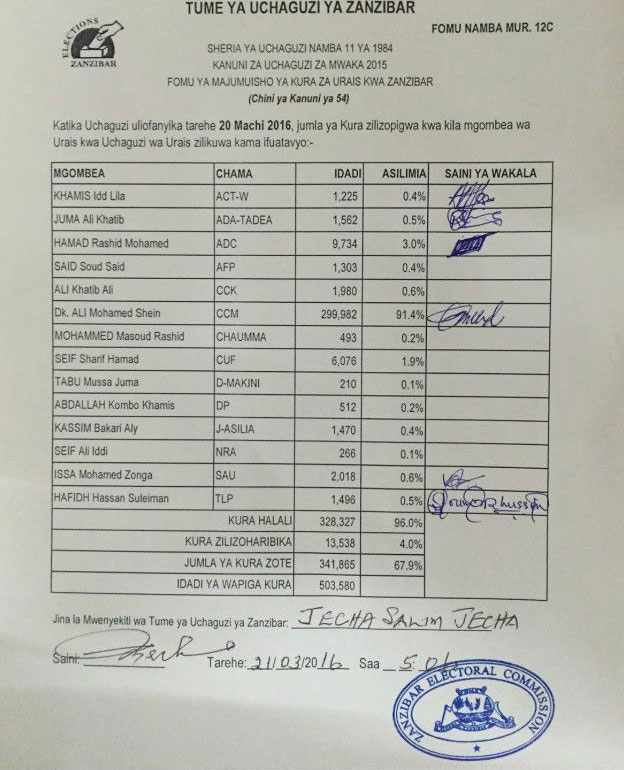 TUME YA UCHAGUZI YA ZANZIBAR
FOMU NAMBA MUR. 12C
ELECTIONS
ZANZIBAR
SHERIA YA UCHAGUZI NAMBA 11 YA 1984
KANUNI ZA UCHAGUZI ZA MWAKA 2015
FOMU YA MAJUMUISHO YA KURA ZA URAIS KWA ZANZIBAR
(Chini ya Kanuni ya 54)
Katika Uchaguzi uliofanyika tarehe 20 Machi 2016, jumla ya Kura zilizopigwa kwa kila mgombea wa
Urais kwa Uchaguzi wa Urais zilikuwa kama ifuatavyo:-
MGOMBEA CHAMA IDADI ASILIMIA SAINI YA WAKALA
KHAMIS Idd Lila ACT-W 1,225 0.4%
JUMA Ali Khatib ADA-TADEA 1,562 0.5%
HAMAD Rashid Mohamed ADC 9,734 3.0%
SAID Soud Said AFP 1,303 0.4%
ALI Khatib Ali CCK 1,980 0.6%
Dk. ALI Mohamed Shein CCM 299,982 91.4%
MOHAMMED Masoud Rashid CHAUMMA 493 0.2%
SEIF Sharif Hamad CUF 6,076 1.9%
TABU Mussa Juma D-MAKINI 210 0.1%
ABDALLAH Kombo Khamis DP 512 0.2%
KASSIM Bakari Aly J-ASILIA 1,470 0.4%
SEIF Ali Iddi NRA 266 0.1%
ISSA Mohamed Zonga SAU 2,018 0.6%
HAFIDH Hassan Suleiman TLP 1,496 0.5%
KURA HALALI 328,327 96.0%
KURA ZILIZOHARIBIKA 13,538 4.0%
JUMLA YA KURA ZOTE 341,865 67.9%
IDADI YA WAPIGA KURA 503,580
Jina la Mwenyekiti wa Tume ya Uchaguzi ya Zanzibar: JECHA SALIM JECHA
Saini: Tarehe: 21/03/2016 Saa
ZANZIBAR ELECTORAL COMMISSION